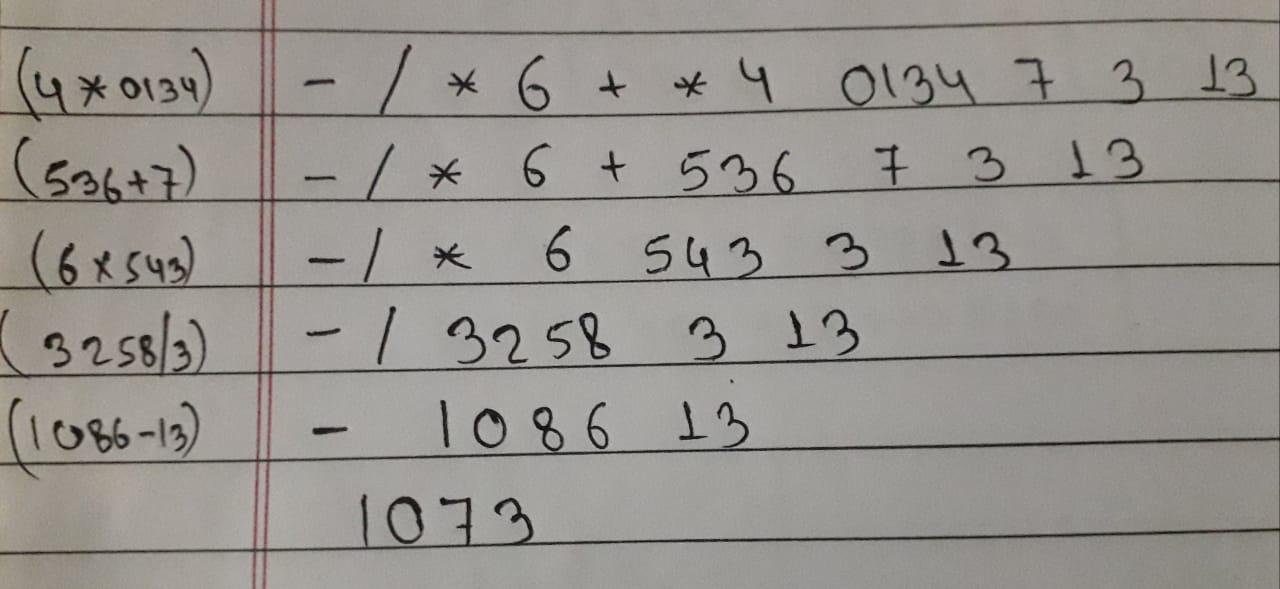 (4*0134) - / * 6 + * 4 0134 7 3 13
(536+7) - / * 6 + 536 7 3 13
(6×543) - / * 6 543 3 13
(3258/3) - / 3258 3 13
(1086-13) - 1086 13
1073